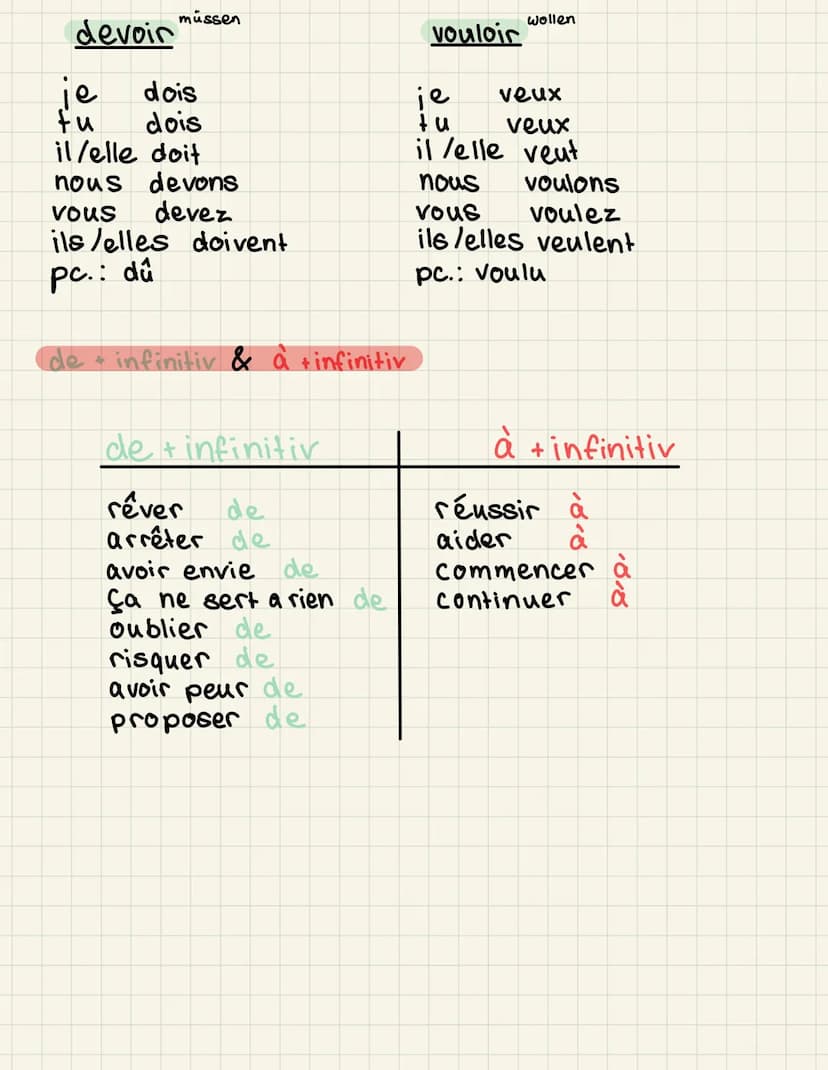 devoir müssen
je dois
tu dois
il/elle doit
nous devons
vous devez
ils/elles doivent
pc.: dû
vouloir wollen
je veux
tu veux
il/elle veut
nous voulons
vous voulez
ils/elles veulent
pc.: voulu
de + infinitiv & à + infinitiv
de + infinitiv
rêver de
arrêter de
avoir envie de
Ça ne sert a rien de
oublier de
risquer de
avoir peur de
proposer de
à + infinitiv
réussir à
aider à
commencer à
continuer à